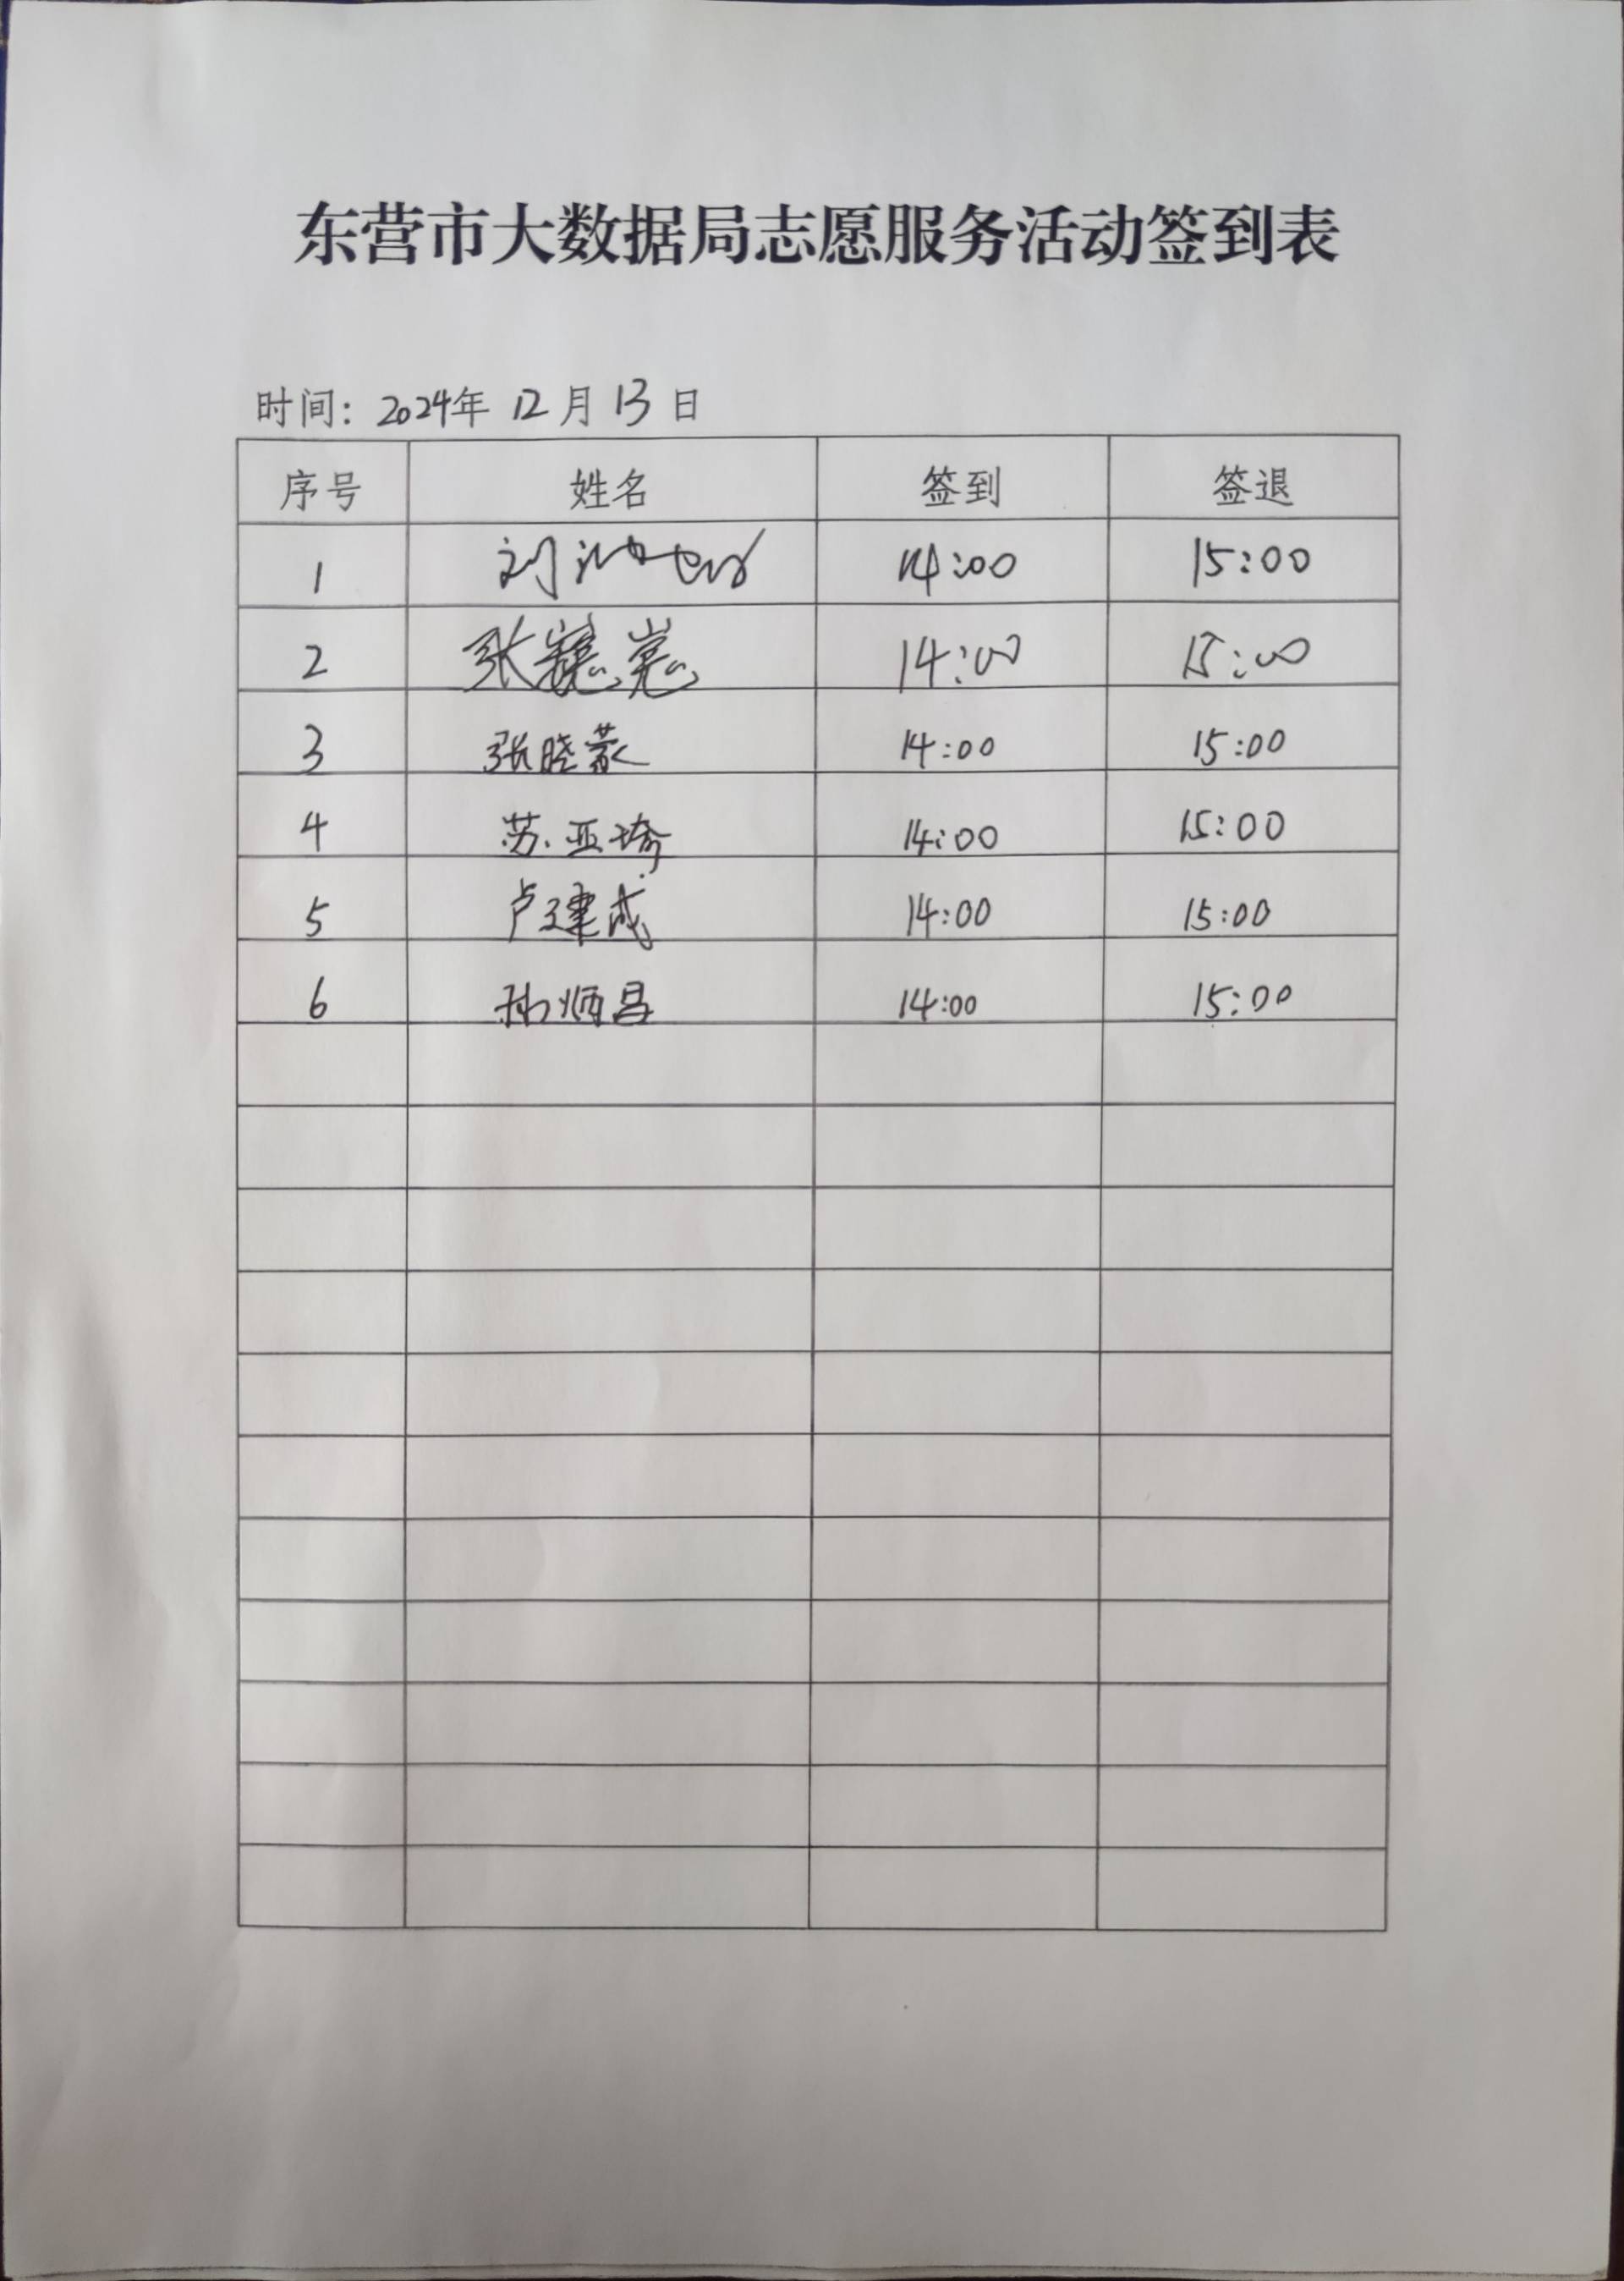 东营市大数据局志愿服务活动签到表
时间：2024年 12 月 13 日
序号 姓名 签到 签退
1 刘 14:00 15:00
2 张 14:00 15:00
3 张晓蒙 14:00 15:00
4 苏亚琦 14:00 15:00
5 卢建成 14:00 15:00
6 孙炳昌 14:00 15:00